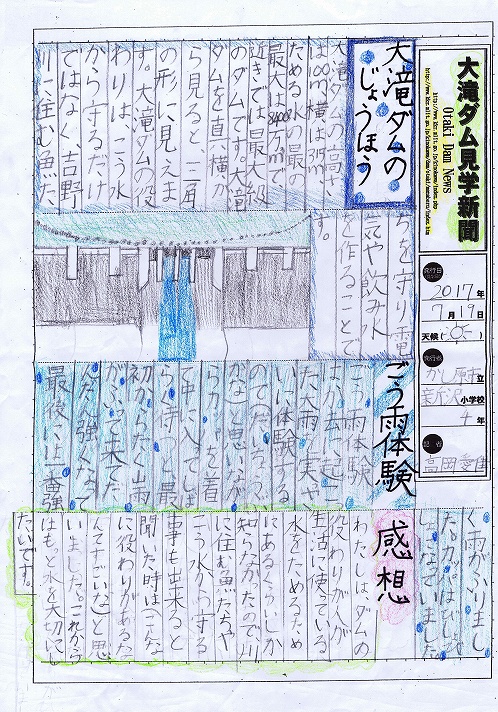 大滝ダム見学新聞
Otaki Dam News
発行日
2017年
7月19日
天候( )
発行者
かし原市立
小学校
4年
記者
大滝ダムの
じょうほう
大滝ダムの高さ
は100m、横は315m
ためる水の最の
最大は8400万m³で
近きでは最大級
のダムです。大滝
ダムを真横か
ら見る、三角
の形に見えま
す。大滝ダムの役
わりは、こう水
から守るだけ
ではなく、吉野
川に住む魚た
ちを守り、電
気や飲み水
を作ることで
す。
ごう雨体験
ごう雨体験
は、過去に起こっ
た大雨を実さ
いに体験する
のでドキドキ
がなと思いなが
らカッパを着
て中に入ってしば
らく待つと、最
初からたくさん雨
がふって来てだ
んだん強くなって
最後に一番強
く雨がふりまし
た。カッパはびしょびしょ
になっていました。
感想
わたしは、ダムの
役わりが人が
生活に使っている
水をためるため
にあるくらいしか
知らなかったので、川
に住む魚たちや
こう水から守る
事も出来ると
聞いた時はこんな
に役わりがあるな
んてすごいなと思
いました。これから
はもっと水を大切にし
たいです。